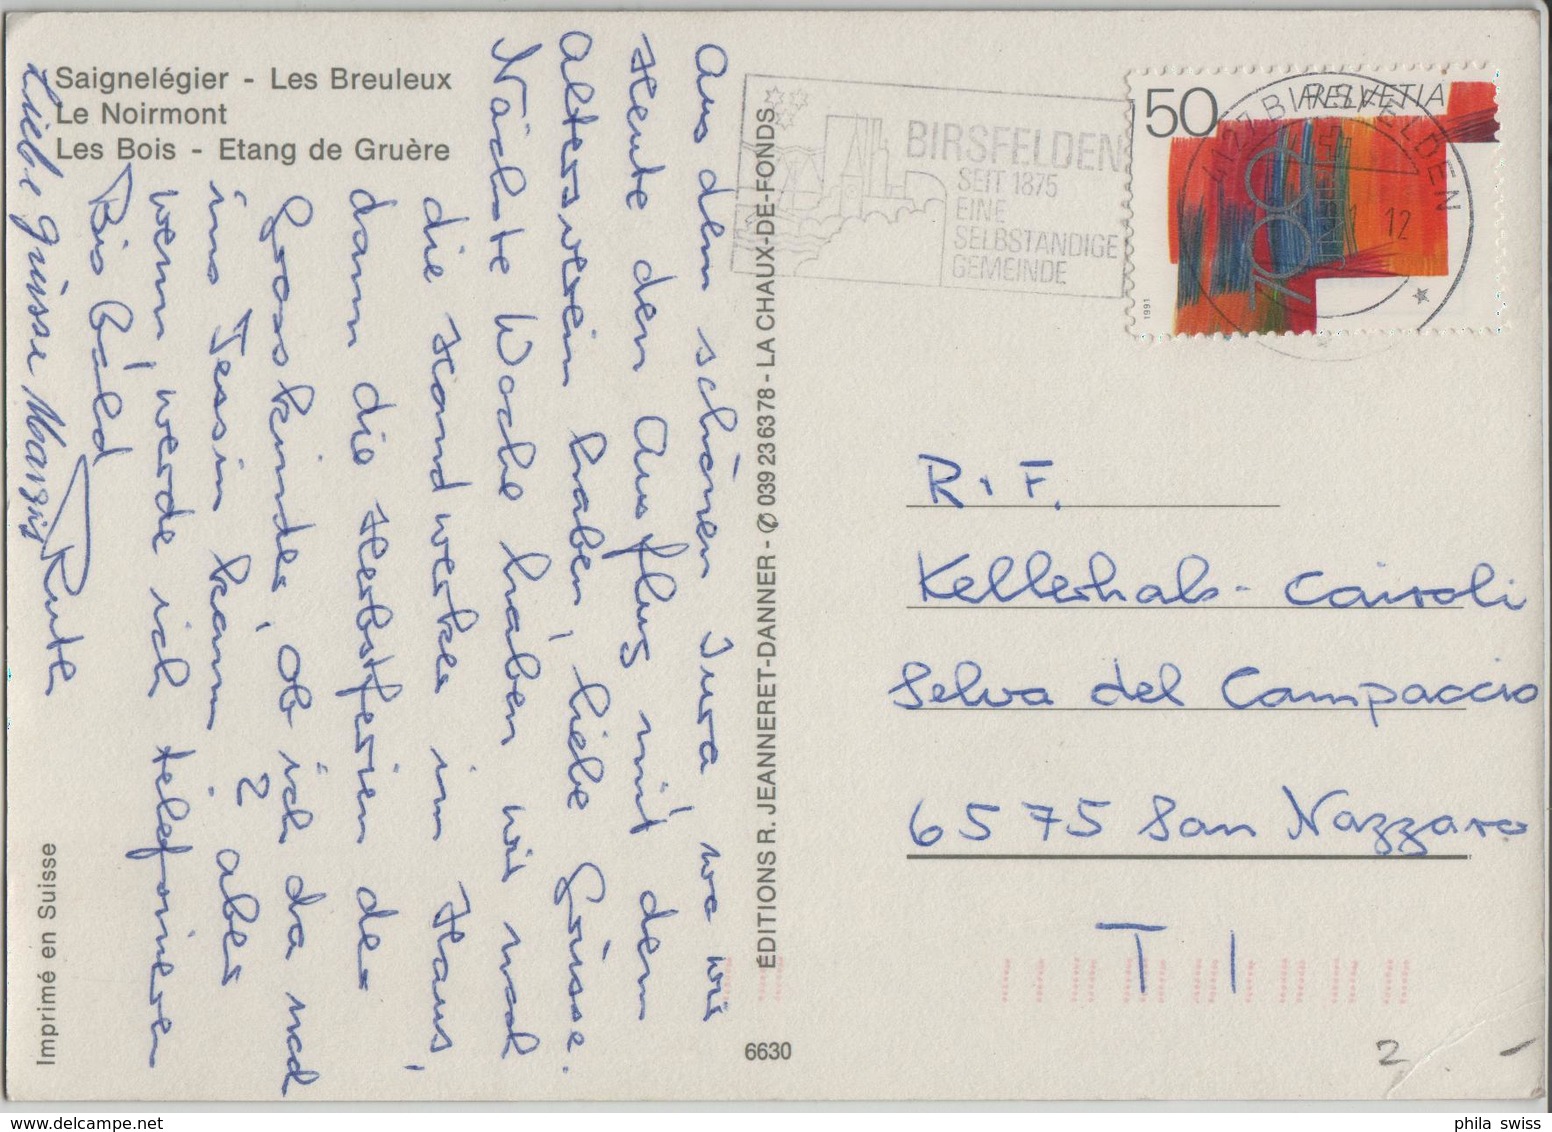 Saignelégier - Les Breuleux
Le Noirmont
Les Bois - Etang de Gruère
Aus dem schönen Jura, wo wir
Heute den Ausflug mit dem
Altersverein haben, liebe Grüsse.
Nächste Woche haben wir noch
die Handwerker im Haus,
dann die Herbstferien der
Grosskinder, ob ich da noch
ins Tessin kann ? aber
wenn, werde ich telefonieren
Bis bald
Ruth
Liebe Grüsse
Imprimé en Suisse
ÉDITIONS R. JEANNERET-DANNER - ✆ 039 23 63 78 - LA CHAUX-DE-FONDS
6630
BIRSFELDEN
SEIT 1875
EINE
SELBSTÄNDIGE
GEMEINDE
50
HELVETIA
700
1991
4127 BIRSFELDEN
12
R. F.
Kellerhals - Cairoli
Selva del Campaccio
6575 San Nazzaro
TI
2 -
phila swiss